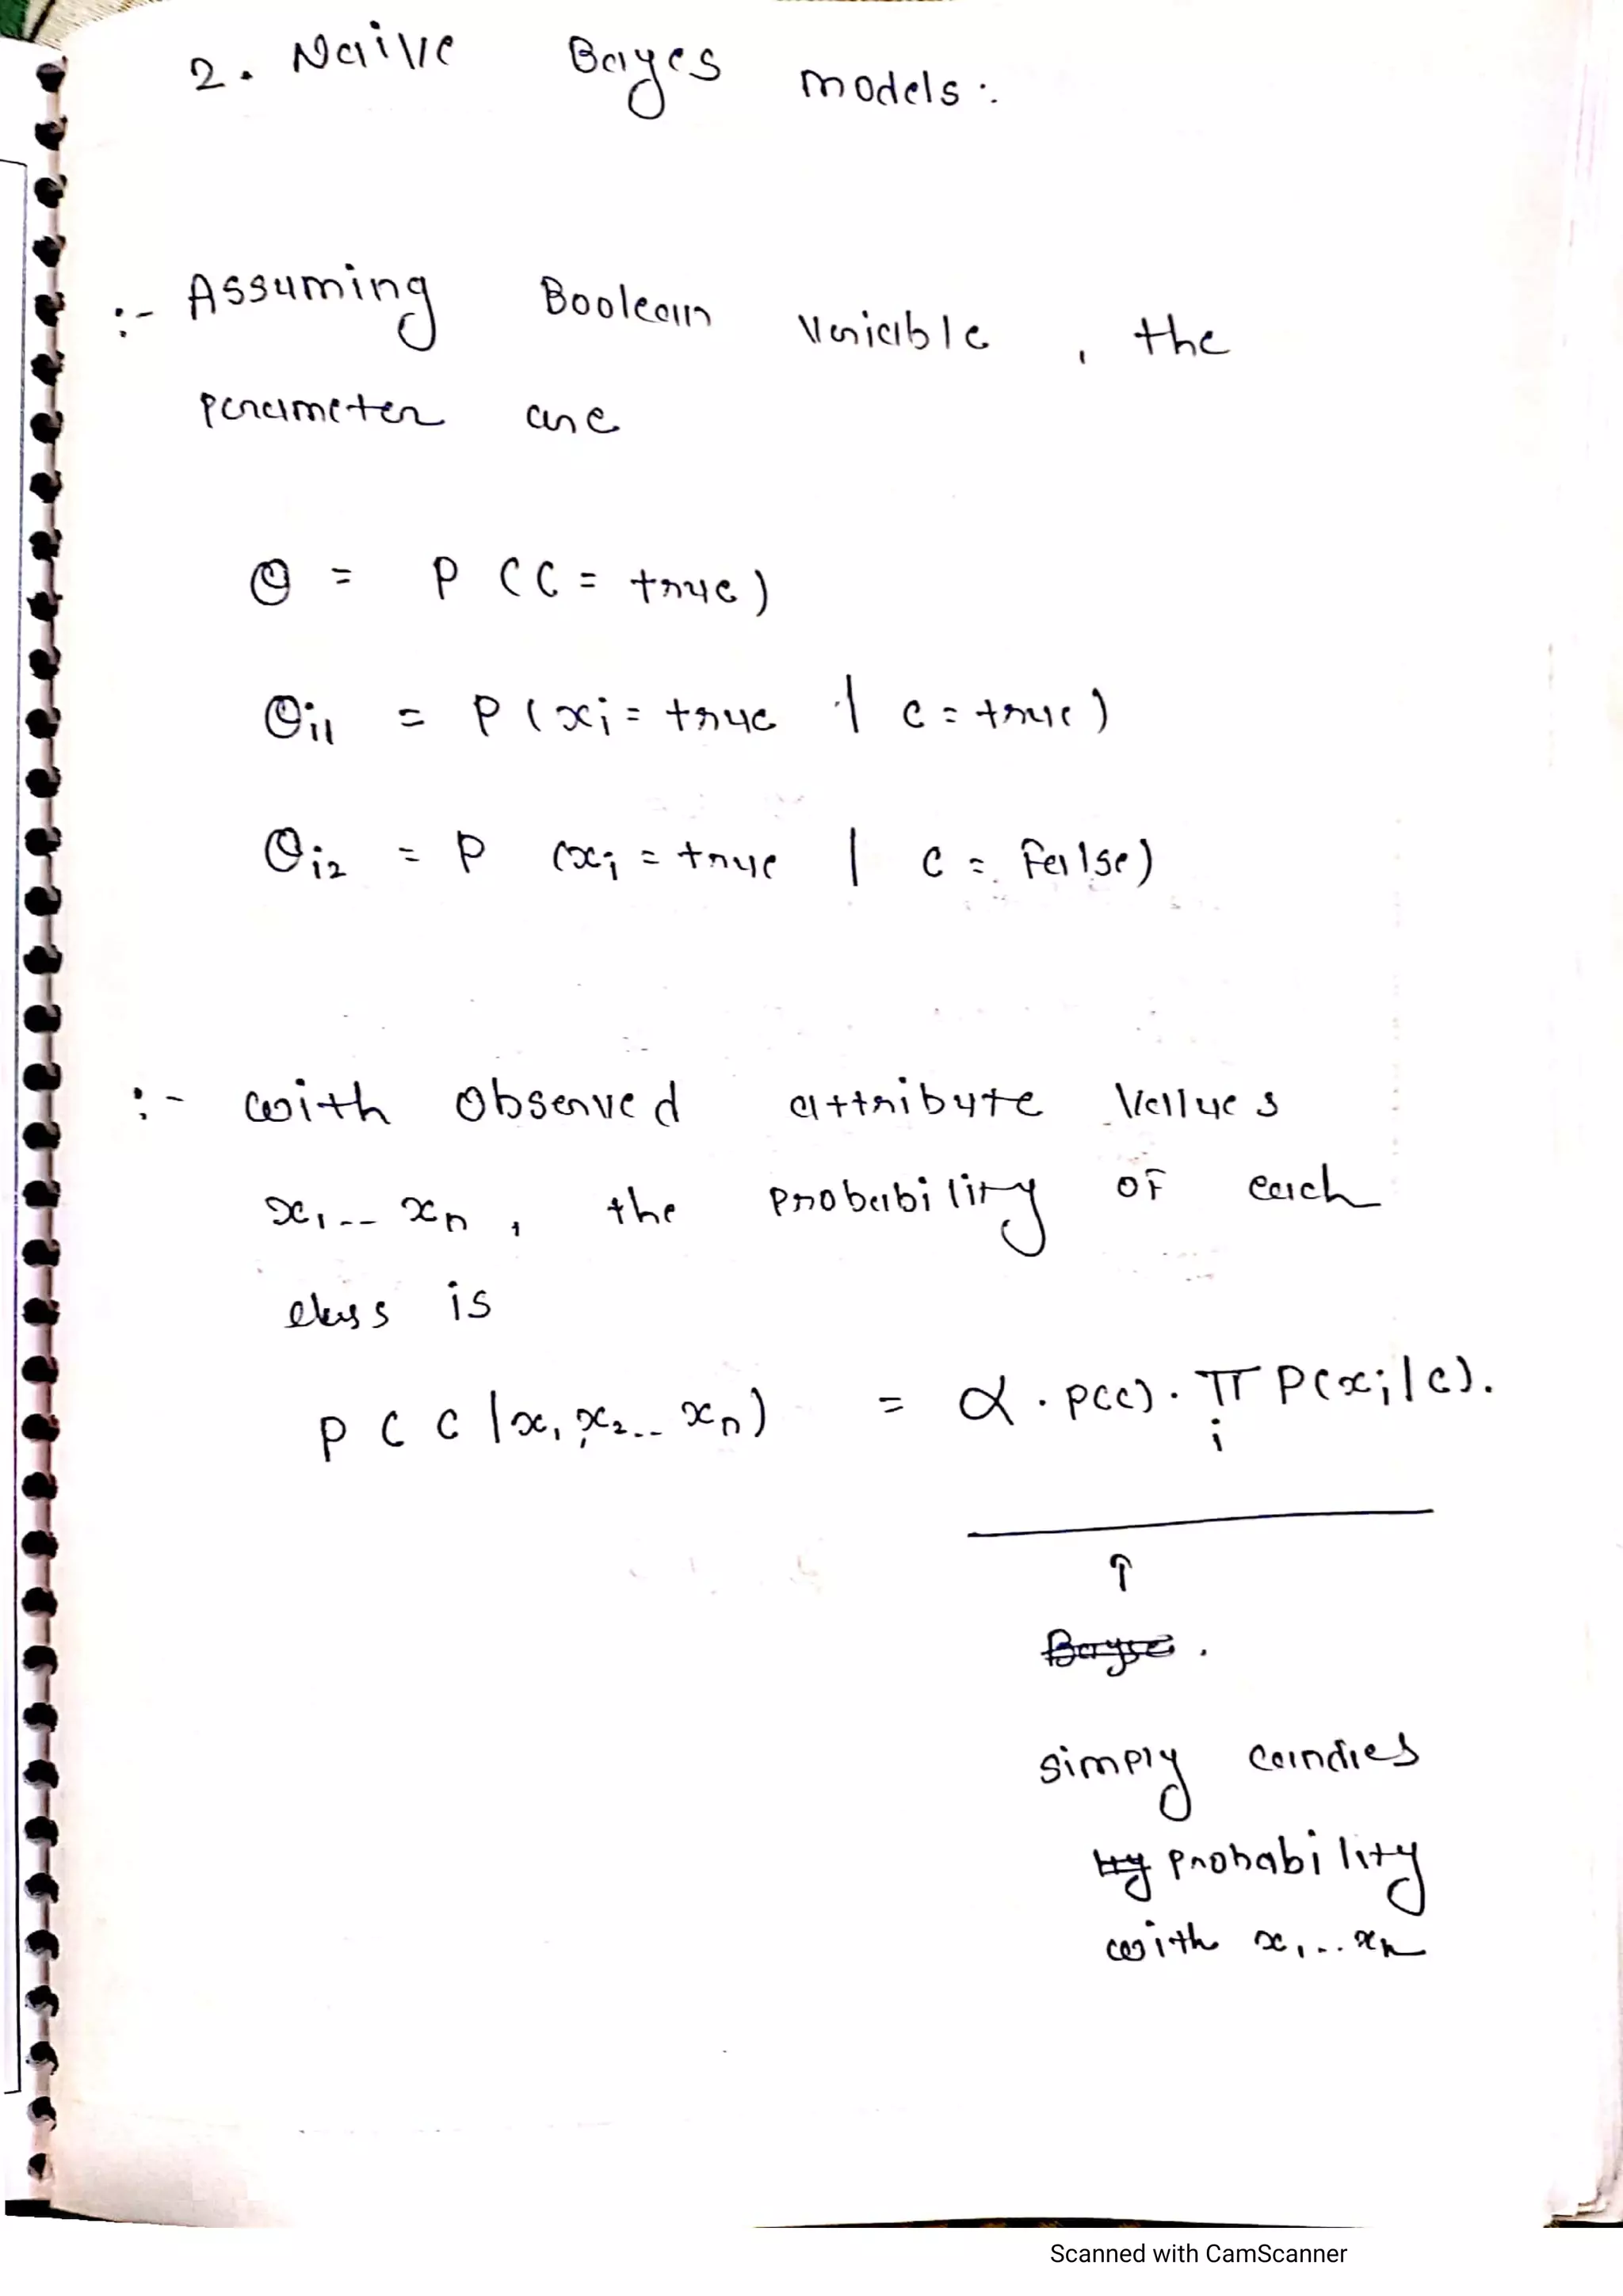 2. Naive Bayes models :.
:- Assuming Boolean variable , the
parameter are
θ = P (C = true)
θi1 = P (xi = true | c = true)
θi2 = P (xi = true | c = False)
:- with observed attribute values
x1 -- xn , the probability of each
class is
P ( C | x1, x2 .. xn) = α . P(c) . π P(xi | c).
i
↑
simply candies
probability
with x1 ... xn
Scanned with CamScanner